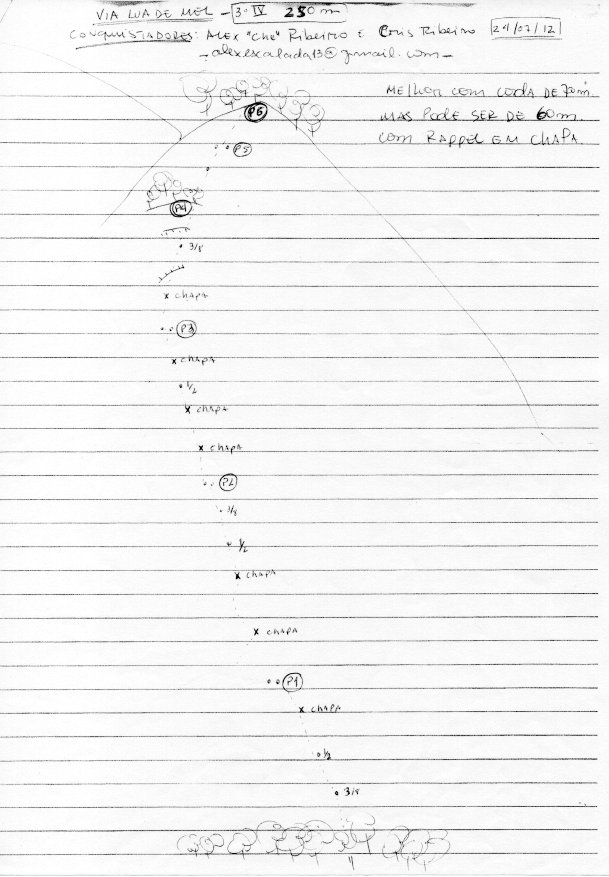 VIA LUA DE MEL - 3º IV 250m
CONQUISTADORES: ALEX "Che" Ribeiro E Cris Ribeiro 24/07/12
- alexescalada13@gmail.com -
MELHOR COM CORDA DE 70m.
MAS PODE SER DE 60m.
COM RAPPEL EM CHAPA.
P6
P5
P4
3/8
CHAPA
P3
CHAPA
1/2
CHAPA
CHAPA
P2
3/8
1/2
CHAPA
CHAPA
P1
CHAPA
1/2
3/8